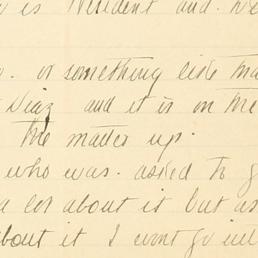 is President and. we
. or something like that
Diaz and it is on the
the matter up.
who was. asked to g
a lot about it but as
about it I wont go int